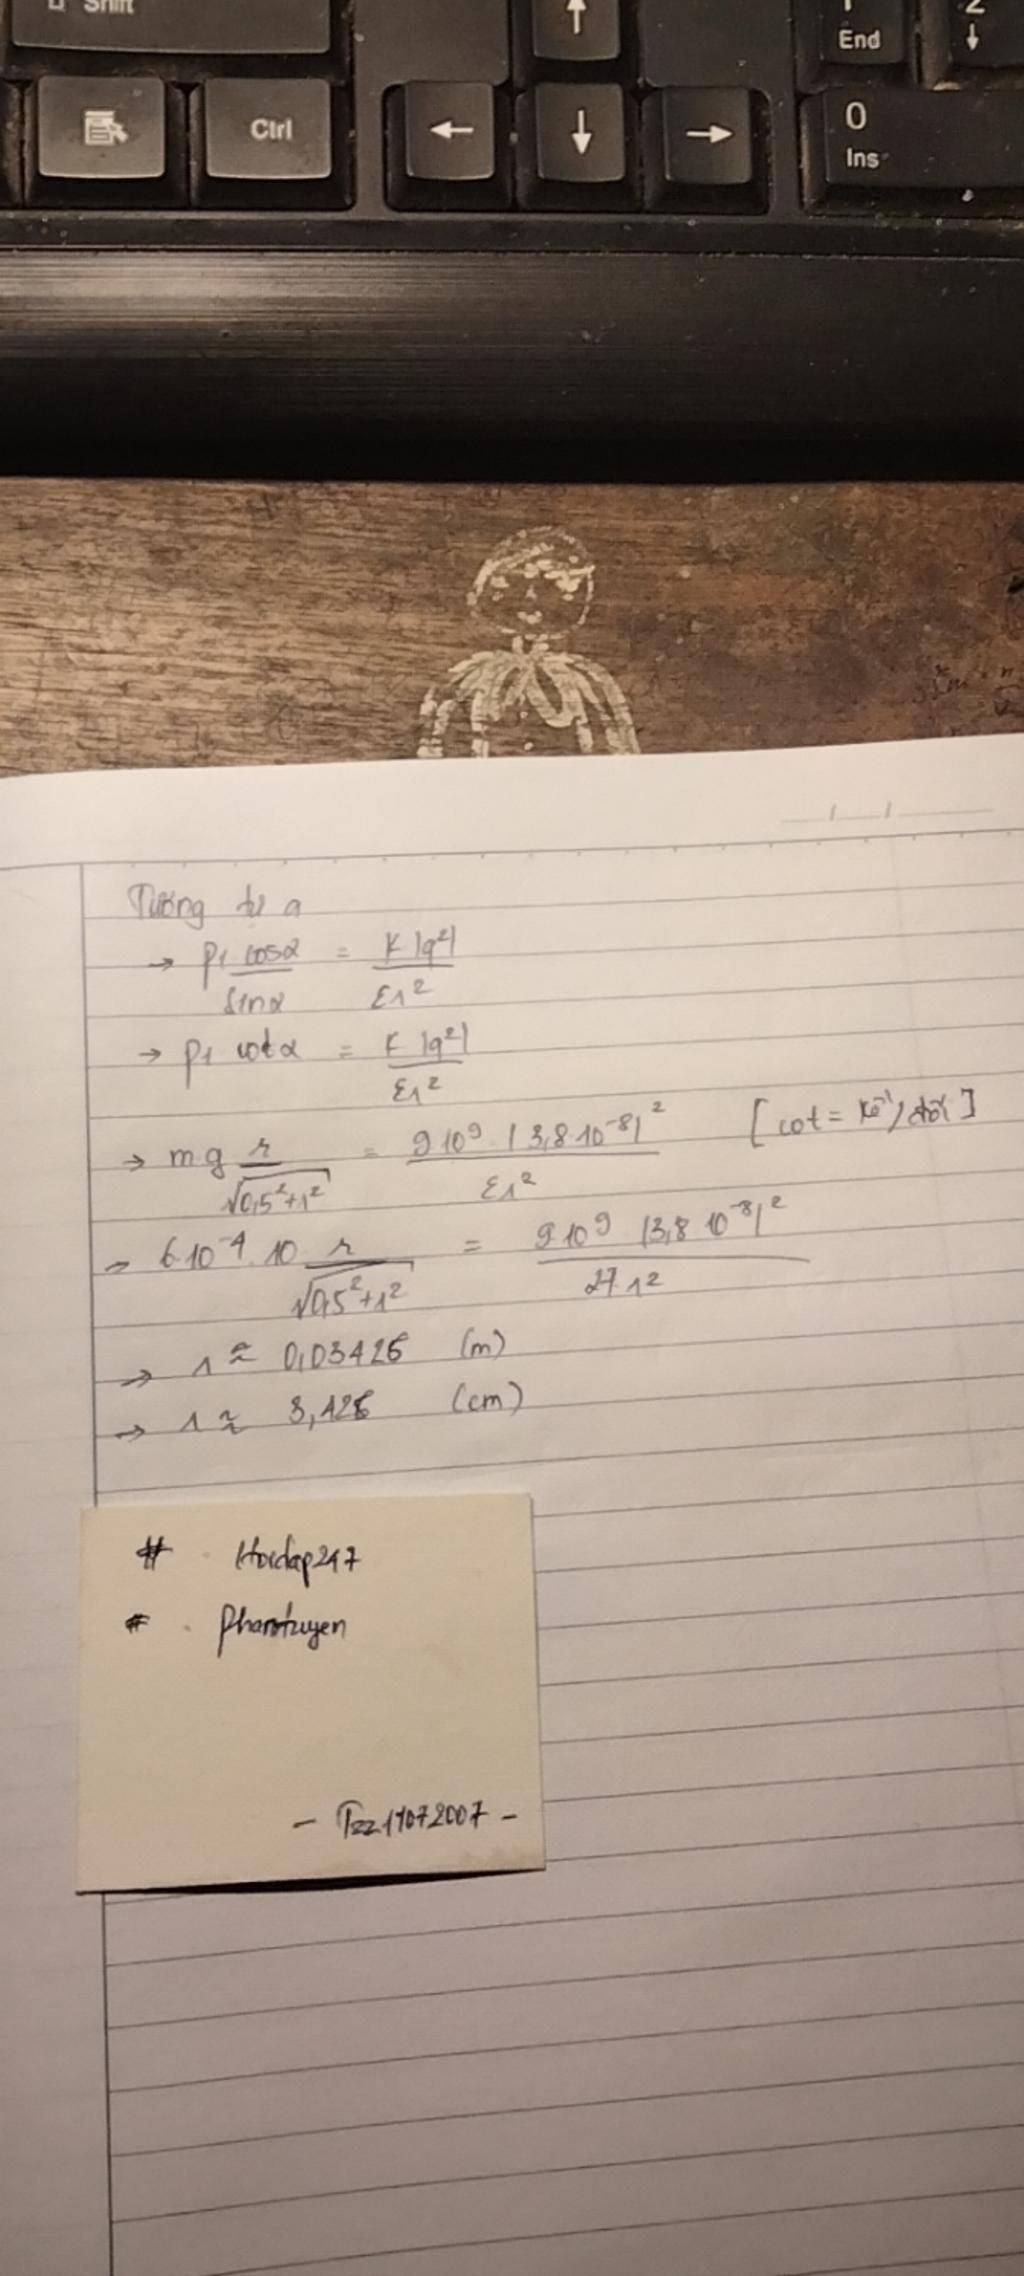 Shift
End
2
Ctrl
0
Ins
Tương tự a
→ P1 cosα/sinα = K|q²|/Er²
→ P1 cotα = K|q²|/Er²
→ mg r/√0,5²+r² = 9.10⁹.|3,8.10⁻⁸|²/Er² [cot = kề/đối]
→ 6.10⁻⁴.10 r/√0,5²+r² = 9.10⁹ |3,8.10⁻⁸|²/27.r²
→ r ≈ 0,03426 (m)
→ r ≈ 3,426 (cm)
# Hoidap247
# Phamtuyen